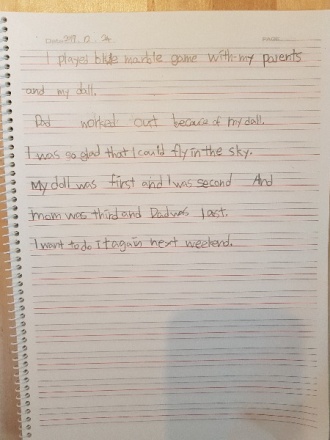 I played blue marble game with my parents
and my doll.
Dad worked out because of my doll.
I was so glad that I could fly in the sky.
My doll was first and I was second And
mom was third and Dad was last.
I want to do it again next weekend.